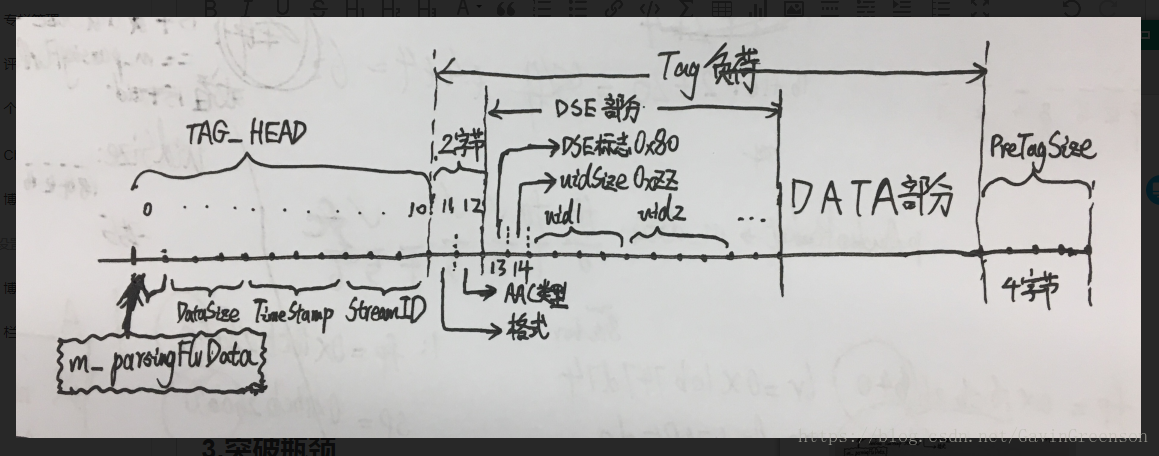 Tag 负荷
TAG_HEAD
2字节
DSE 部分
DSE标志 0x80
uidSize 0xZZ
PreTagSize
0 . . . . . . . . . 10 11 12
uid1 uid2 ...
DATA部分
13 14
DataSize TimeStamp StreamID
AAC类型
格式
4字节
m_parsingFlvData
https://blog.csdn.net/GavinGreenson
3.突破瓶颈